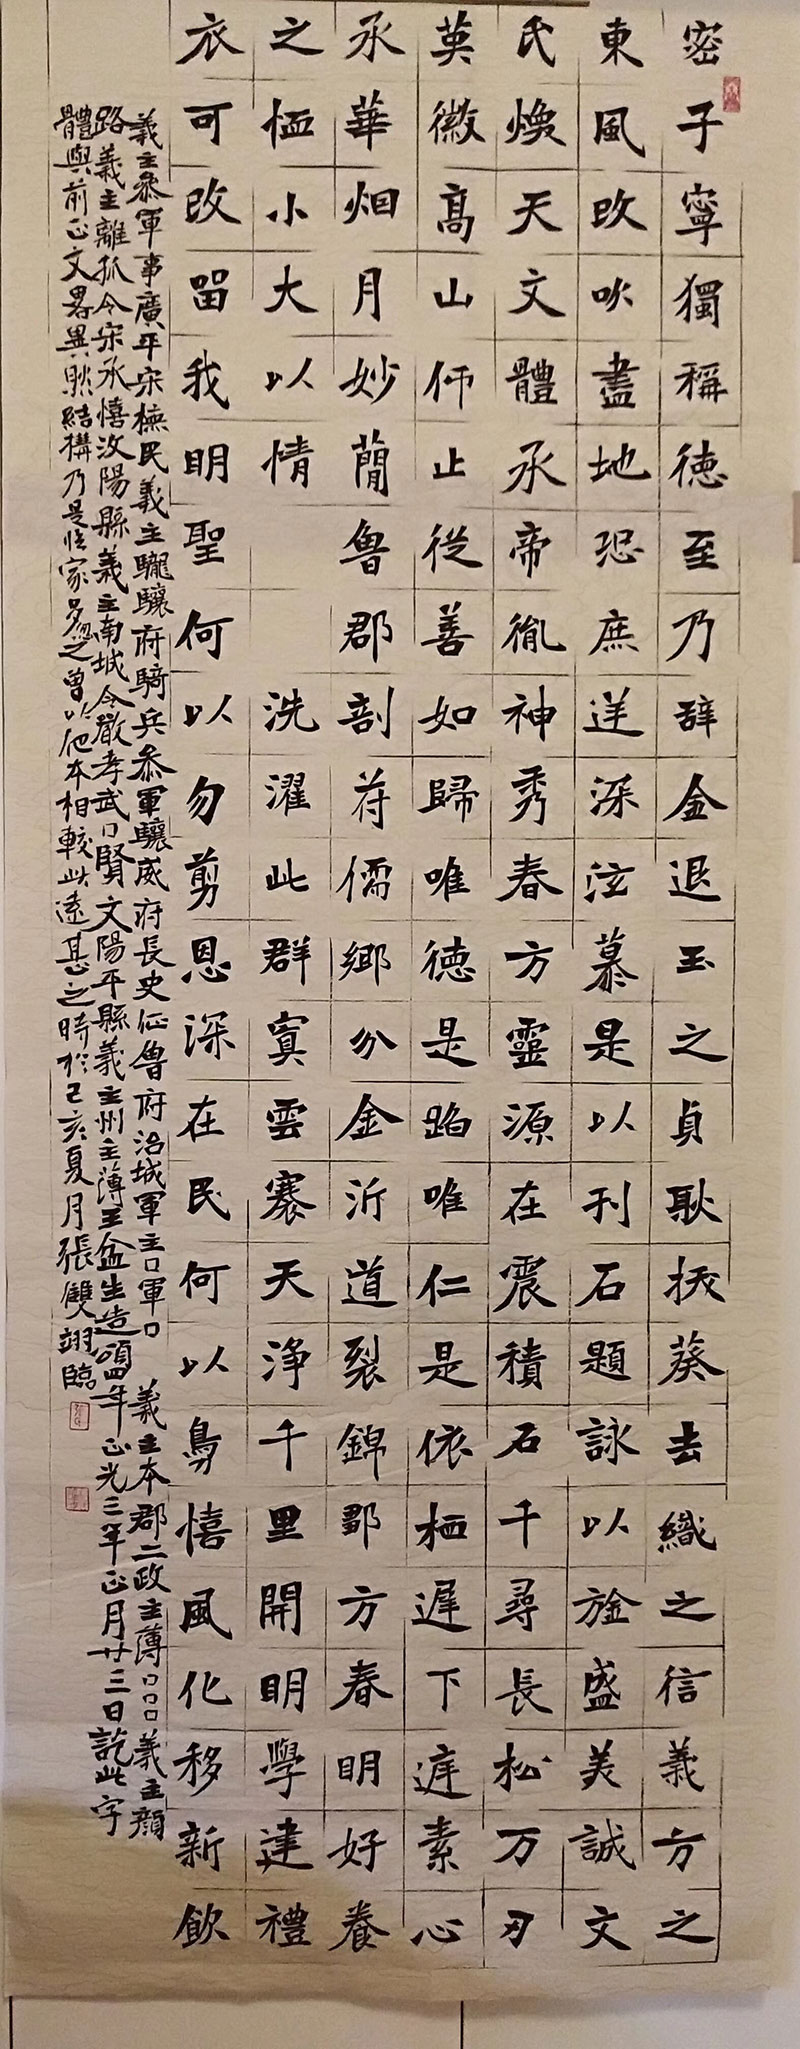 密子寧獨稱德至乃辞金退玉之貞耿拔葵去織之信義方之
東風改吹盡地恐庶逆深泣慕是以刊石題詠以旌盛美誠文
氏煥天文體承帝胤神秀春方靈源在震積石千尋長松万刃
英徽高山仰止從善如歸唯德是蹈唯仁是依栖遲下庭素心
承華烟月妙簡魯郡剖苻儒鄉分金沂道裂錦鄒方春明好養
之恤小大以情 洗濯此群冥雲褰天净千里開明學建禮
衣可改留我明聖何以勿剪恩深在民何以鳥憘風化移新飲
義主叅軍事廣平宋撫民義主龍驤府騎兵叅軍驤威府長史征魯府治城軍主口軍口 義主本郡二政主薄口口口義主顏
路義主離狐令宋承憘汶陽縣義主南城令嚴孝武口賢文陽平縣義主州主薄王盆生造頌四年正光三年正月廿三日訖此字
體與前正文畧異然結構乃是性家忽之曾以他本相較此遠甚之時於己亥夏月張雙翊臨